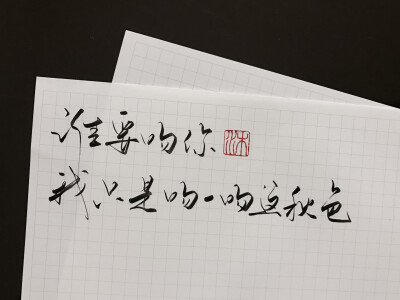 谁要吻你
我只是吻一吻这秋色